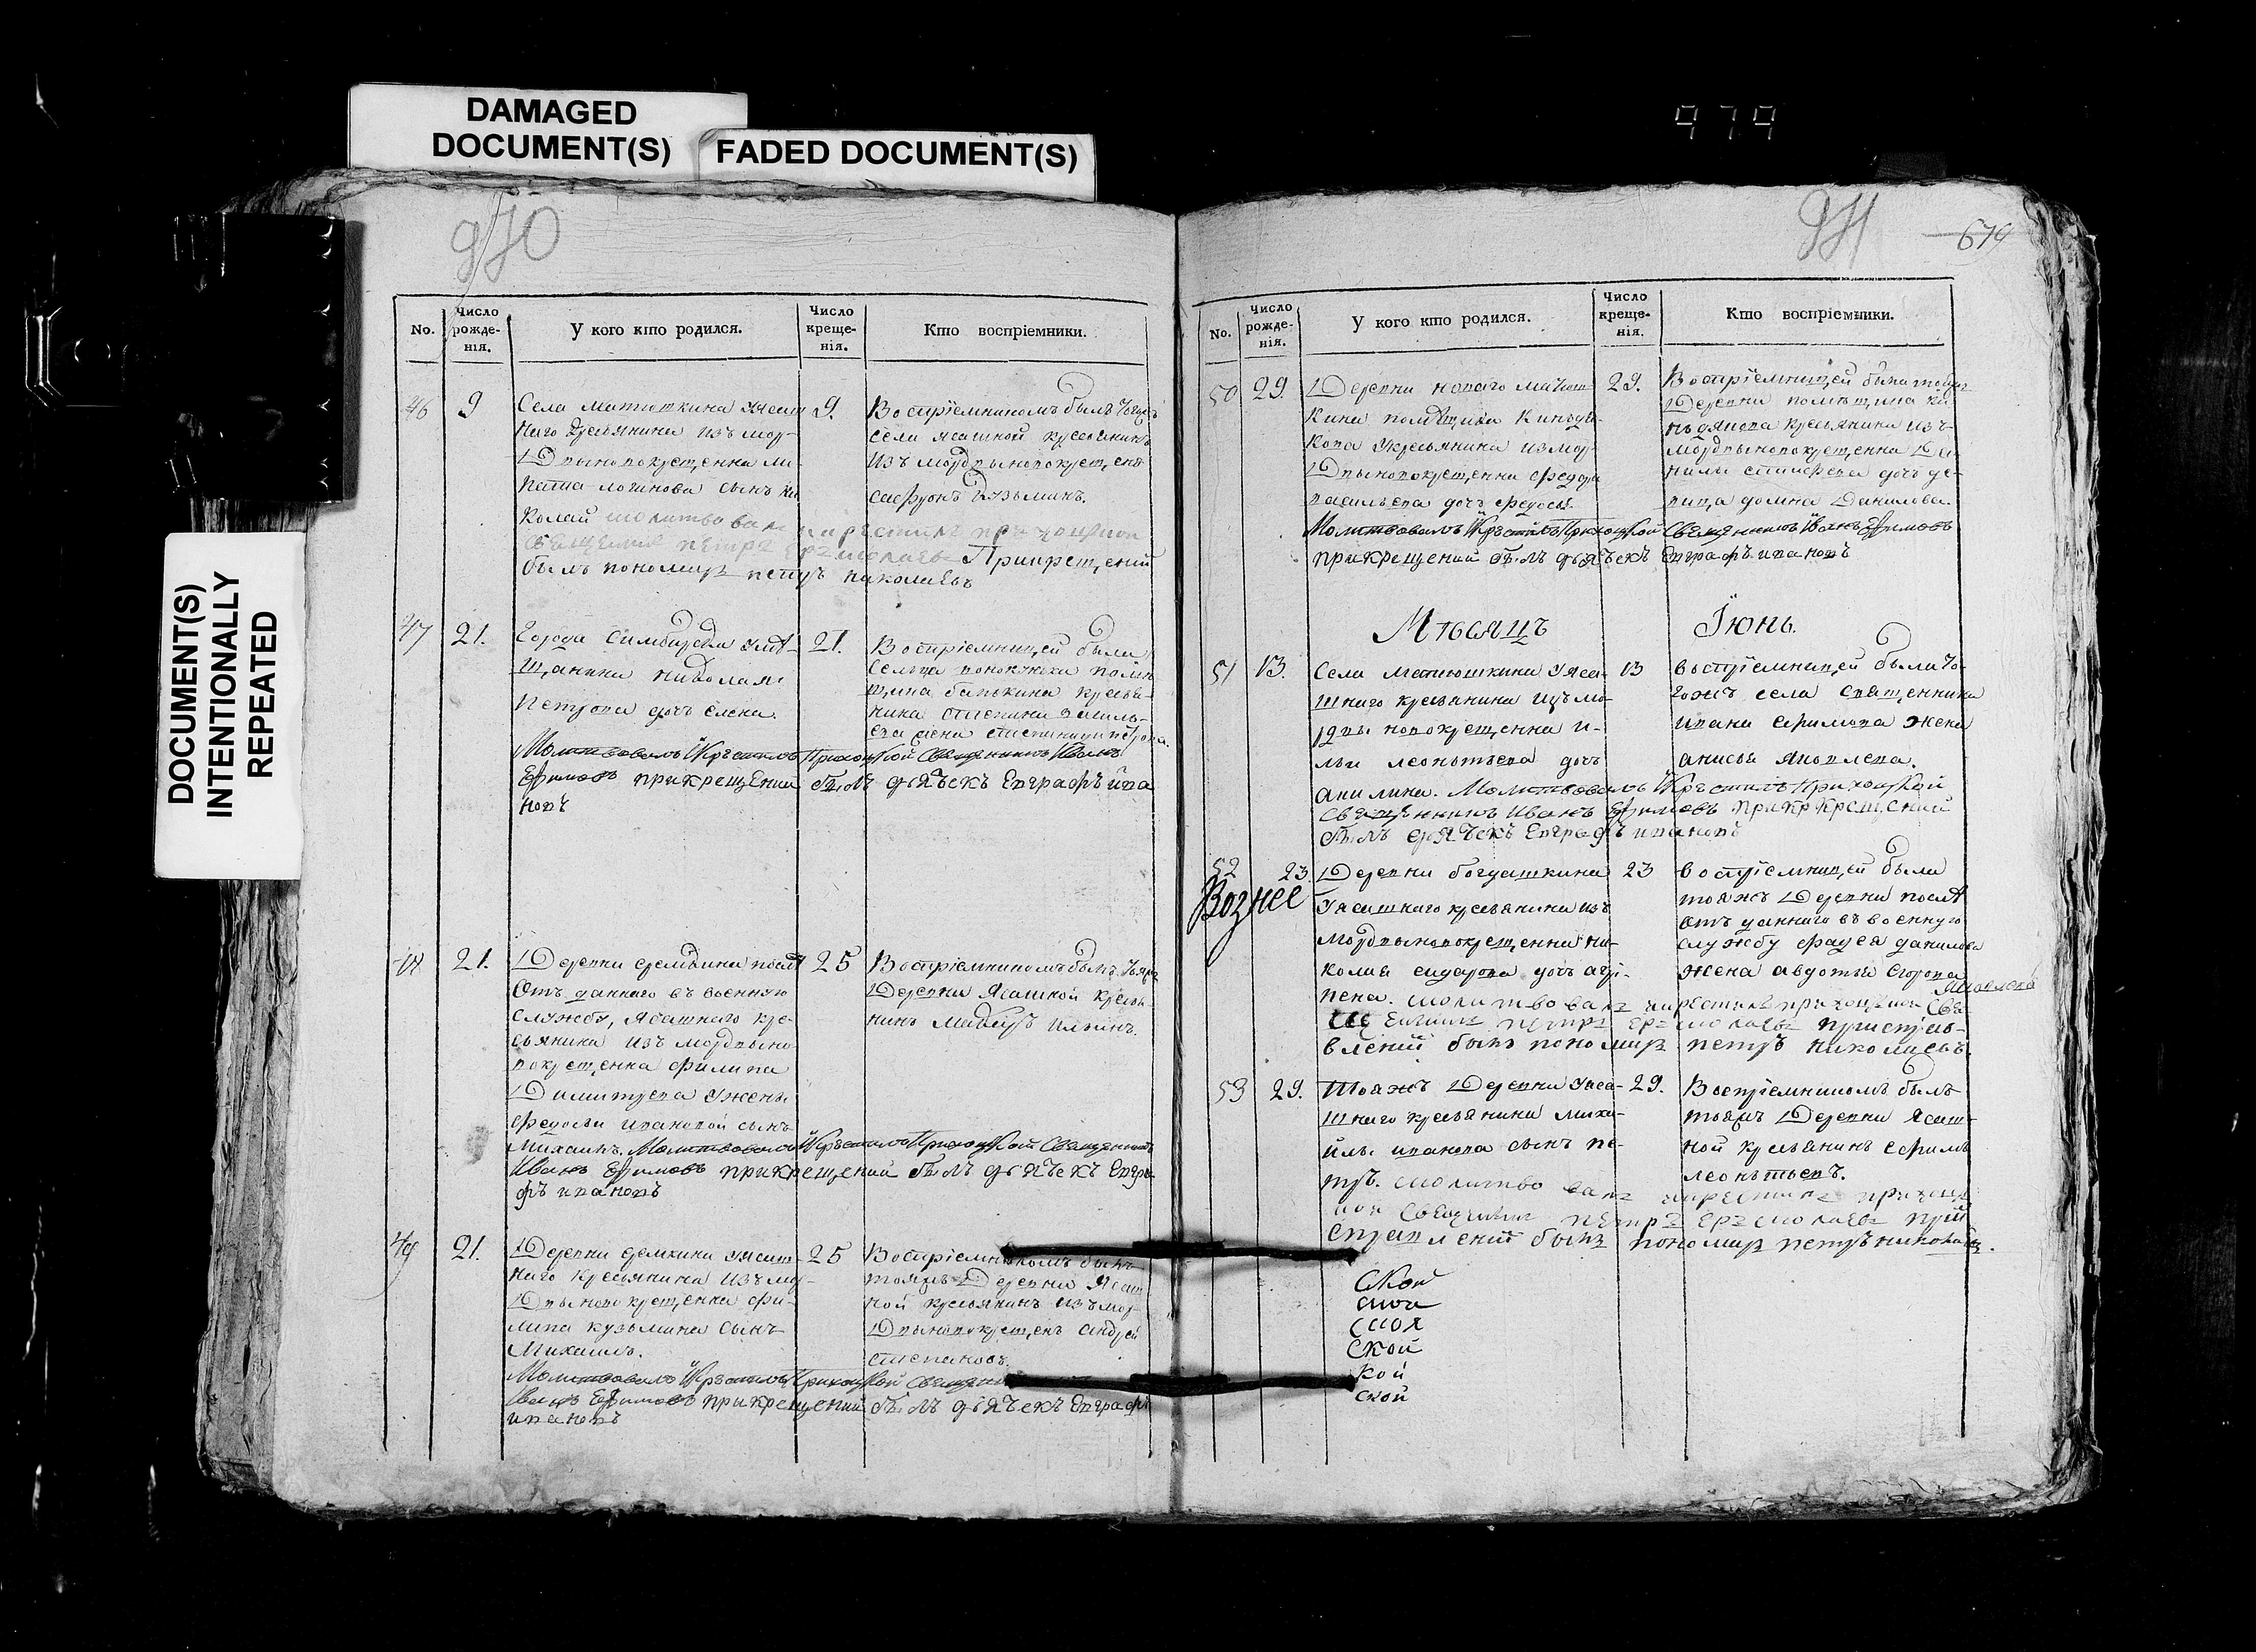 DAMAGED
DOCUMENT(S)
FADED DOCUMENT(S)
979
DOCUMENT(S)
INTENTIONALLY
REPEATED
970
No.
Число рожде-нія.
У кого кто родился.
Число креще-нія.
Кто воспріемники.
46
9
Села матюшкина уясаш
наго кресьянина изъ мор-
двыновокрещенна ли-
логинова сынъ ни
колай молитвовалъ и крестилъ приходцкой
свещенникъ петръ ермолаевъ При крещеніи
былъ пономарь петръ николаевъ
9.
Воспріемникомъ былъ
села ясашной кресьянинъ
изъ мордвыновокрещенъ
сафронъ кузьминъ.
47
21.
Города Симбирска умѣ-
щанина николая
петрова дочь елена.
Молитвовалъ Икрѣстилъ Приходцкой Священникъ Иванъ
Ефимовъ прикрещении былъ дьячекъ Евграфъ ива
новъ
21.
Воспріемницей была
сельца помѣ
щика кресья-
нина степана василь-
ева жена
48
21.
Деревни демкина послѣ
отъ даннаго въ военную
службу, ясашнаго кре-
сьянина изъ мордвыно-
вокрещенна филипа
Димитрева ужены
федосьи ивановой сынъ
михаилъ. Молитвовалъ Икрѣстилъ Приходцкой Священникъ
Иванъ Ефимовъ прикрещении былъ дьячекъ Евгра-
фъ ивановъ
25
Воспріемникомъ былъ тояжъ
Деревни Ясашной кресья-
нинъ ильинъ.
49
21.
Деревни демкина уясаш-
наго кресьянина изъ мор-
двыновокрещенна фи-
липа кузьмина сынъ
Михаилъ.
Молитвовалъ Икрѣстилъ Приходцкой Священни
Иванъ Ефимовъ прикрещении былъ дьячекъ Евграфъ
ивановъ
25
Воспріемникомъ былъ
тояжъ Деревни Ясаш
ной кресьянинъ изъ мор-
двыновокрещенъ андрей
степановъ.
971
679
No.
Число рожде-нія.
У кого кто родился.
Число креще-нія.
Кто воспріемники.
50
29.
Деревни новаго матюш
кина помѣщика киндя-
кова укресьянина измор-
двыновокрещенна федора
васильева дочь федосья.
Молитвовалъ Икрѣстилъ Приходцкой Священникъ Иванъ Ефимовъ
прикрещении былъ дьячекъ Евграфъ ивановъ
29.
Воспріемницей была тояжъ
Деревни помѣщика ки-
ндякова кресьянина изъ
мордвыновокрещенна Да-
нилы дочь де-
вица Данилова.
Мѣсяцъ Іюнь.
51
13.
Села матюшкина уяса-
шнаго кресьянина изъ мо-
рдвы новокрещенна и-
льи леонтьева дочь
акилина. Молитвовалъ Икрѣстилъ Приходцкой
Священникъ Иванъ Ефимовъ прикр крещении
былъ дьячекъ Евграфъ ивановъ
13
воспріемницей была то-
гожъ села священника
ивана ефимова жена
анисья яковлева.
52
Вознес
23.
Деревни богдашкина
Уясашнаго кресьянина изъ
мордвыновокрещенна ни-
колая сидарова дочь агри-
пена. молитвовалъ икрестилъ приходцкой свя-
щенникъ петръ ермолаевъ при отпра-
вленіи былъ пономарь петръ николаевъ.
23
воспріемницей была
тояжъ Деревни послѣ
отъ даннаго въ военную
службу фадея данилова
жена авдотья егорова
Яковлева
53
29.
Тояжъ Деревни уяса-
шнаго кресьянина миха-
йлы иванова сынъ пе-
тръ. молитвовалъ икрестилъ приходц
кой свещенникъ петръ ермолаевъ при
справленіи былъ пономарь петръ николаевъ.
29.
Воспріемникомъ былъ
тояжъ Деревни Ясаш-
ной кресьянинъ ефимъ
леонтьевъ.
Ской
ской
кой
ской